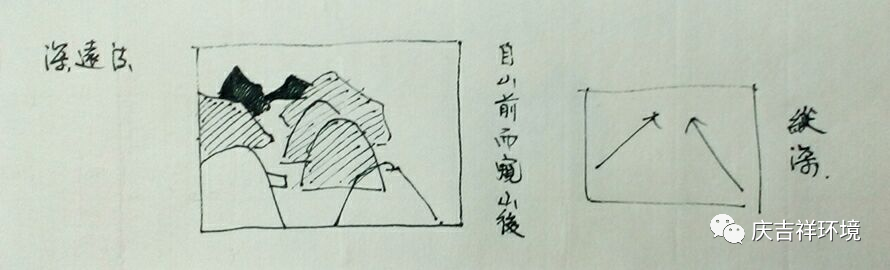 深遠法
自山前而窺山後
縱深.
庆吉祥环境